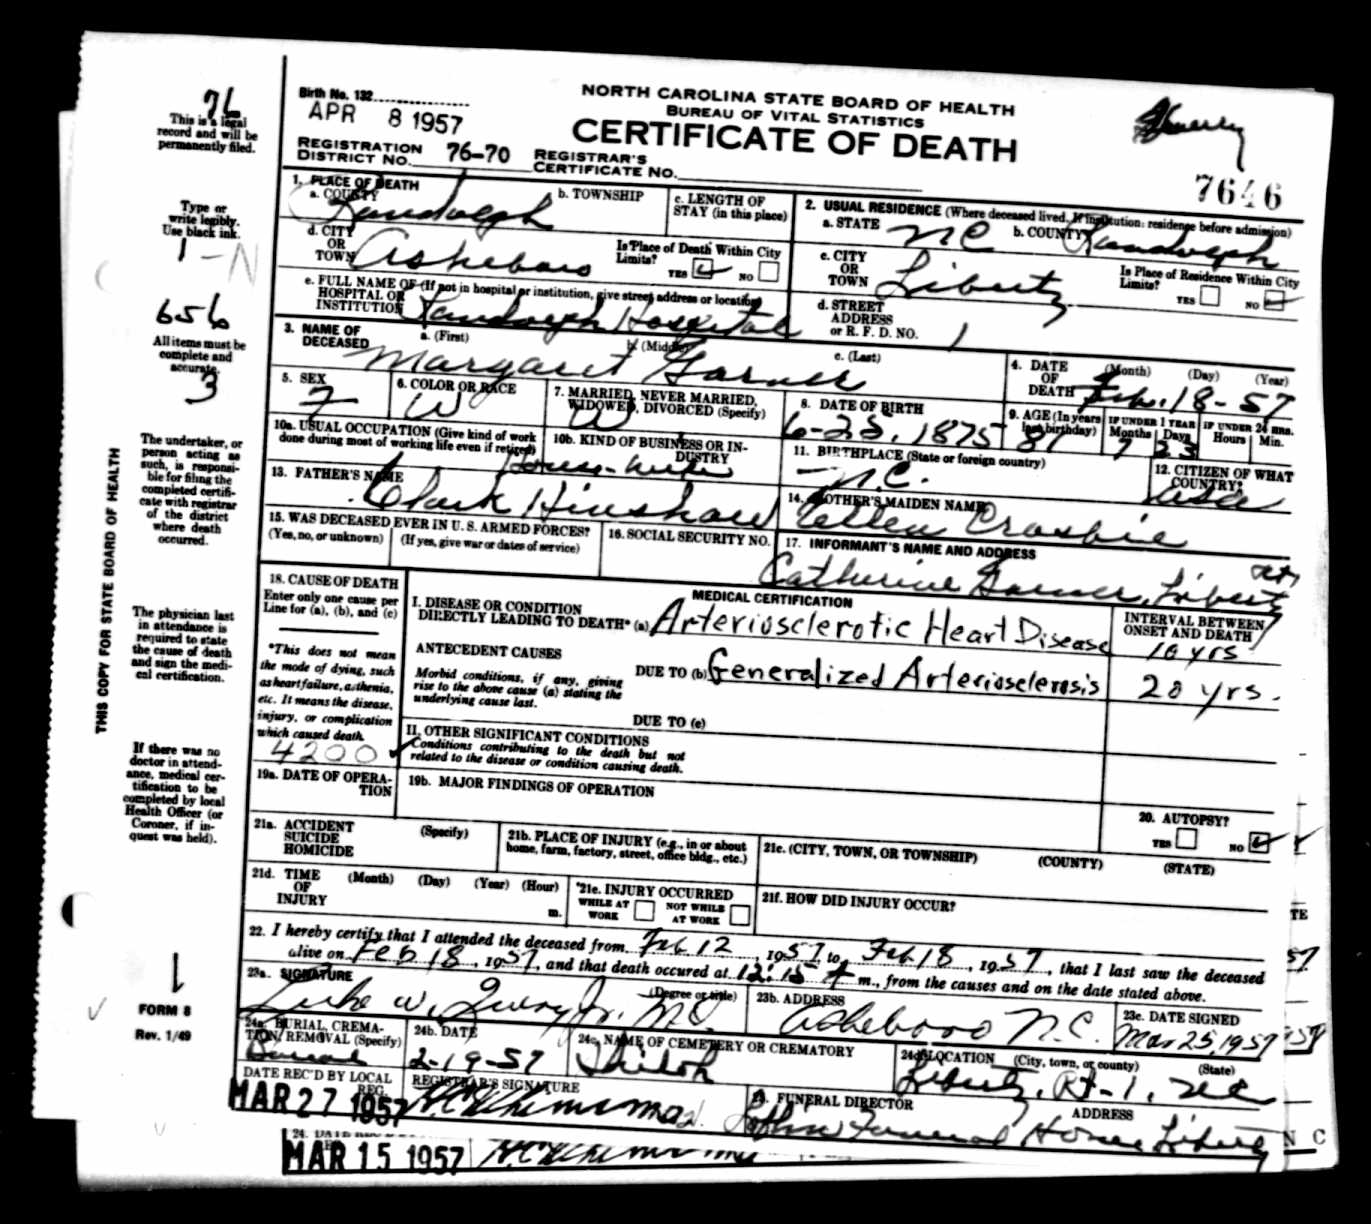 76
This is a legal
record and will be
permanently filed.
Type or
write legibly.
Use black ink.
1-N
656
All items must be
complete and
accurate.
3
The undertaker, or
person acting as
such, is responsi-
ble for filing the
completed certifi-
cate with registrar
of the district
where death
occurred.
The physician last
in attendance is
required to state
the cause of death
and sign the medi-
cal certification.
If there was no
doctor in attend-
ance, medical cer-
tification to be
completed by local
Health Officer (or
Coroner, if in-
quest was held).
1
FORM 8
Rev. 1/49
THIS COPY FOR STATE BOARD OF HEALTH
Birth No. 132
APR 8 1957
NORTH CAROLINA STATE BOARD OF HEALTH
BUREAU OF VITAL STATISTICS
CERTIFICATE OF DEATH
7646
REGISTRATION DISTRICT NO. 76-70 REGISTRAR'S CERTIFICATE NO.
1. PLACE OF DEATH
a. COUNTY Randolph
b. TOWNSHIP
c. LENGTH OF STAY (in this place)
2. USUAL RESIDENCE (Where deceased lived. If institution: residence before admission)
a. STATE NC b. COUNTY Randolph
d. CITY OR TOWN Asheboro
Is Place of Death Within City Limits? YES NO
c. CITY OR TOWN Liberty
Is Place of Residence Within City Limits? YES NO
e. FULL NAME OF (If not in hospital or institution, give street address or location)
HOSPITAL OR INSTITUTION Randolph Hospital
d. STREET ADDRESS or R. F. D. NO. 1
3. NAME OF DECEASED a. (First) b. (Middle) c. (Last)
Margaret Garner
4. DATE OF DEATH (Month) (Day) (Year)
Feb. 18-57
5. SEX F
6. COLOR OR RACE W
7. MARRIED, NEVER MARRIED, WIDOWED, DIVORCED (Specify) W
8. DATE OF BIRTH 6-25, 1875
9. AGE (In years last birthday) 81
IF UNDER 1 YEAR Months 7 Days 23
IF UNDER 24 HRS. Hours Min.
10a. USUAL OCCUPATION (Give kind of work done during most of working life even if retired)
House-wife
10b. KIND OF BUSINESS OR INDUSTRY
11. BIRTHPLACE (State or foreign country)
N.C.
12. CITIZEN OF WHAT COUNTRY? USA
13. FATHER'S NAME
Clark Hinshaw
14. MOTHER'S MAIDEN NAME
Ellen Crosbie
15. WAS DECEASED EVER IN U. S. ARMED FORCES?
(Yes, no, or unknown) (If yes, give war or dates of service)
16. SOCIAL SECURITY NO.
17. INFORMANT'S NAME AND ADDRESS
Catherine Garner, Liberty
18. CAUSE OF DEATH
Enter only one cause per
Line for (a), (b), and (c)
*This does not mean
the mode of dying, such
as heart failure, asthenia,
etc. It means the disease,
injury, or complication
which caused death.
4200
MEDICAL CERTIFICATION
INTERVAL BETWEEN ONSET AND DEATH
I. DISEASE OR CONDITION
DIRECTLY LEADING TO DEATH* (a) Arteriosclerotic Heart Disease 10 yrs
ANTECEDENT CAUSES
Morbid conditions, if any, giving
rise to the above cause (a) stating the
underlying cause last.
DUE TO (b) Generalized Arteriosclerosis 20 yrs.
DUE TO (c)
II. OTHER SIGNIFICANT CONDITIONS
Conditions contributing to the death but not
related to the disease or condition causing death.
19a. DATE OF OPERATION
19b. MAJOR FINDINGS OF OPERATION
20. AUTOPSY?
YES NO
21a. ACCIDENT SUICIDE HOMICIDE (Specify)
21b. PLACE OF INJURY (e.g., in or about home, farm, factory, street, office bldg., etc.)
21c. (CITY, TOWN, OR TOWNSHIP) (COUNTY) (STATE)
21d. TIME OF INJURY (Month) (Day) (Year) (Hour) m.
21e. INJURY OCCURRED
WHILE AT WORK NOT WHILE AT WORK
21f. HOW DID INJURY OCCUR?
22. I hereby certify that I attended the deceased from Feb 12, 1957 to Feb 18, 1957, that I last saw the deceased
alive on Feb 18, 1957, and that death occured at 12:15 A m., from the causes and on the date stated above.
23a. SIGNATURE (Degree or title)
Luke W. Query Jr. M.D.
23b. ADDRESS
Asheboro N.C.
23c. DATE SIGNED
Mar 25, 1957
24a. BURIAL, CREMATION, REMOVAL (Specify)
Burial
24b. DATE
2-19-57
24c. NAME OF CEMETERY OR CREMATORY
Shiloh
24d. LOCATION (City, town, or county) (State)
Liberty, Rt-1, NC
DATE REC'D BY LOCAL REG.
MAR 27 1957
REGISTRAR'S SIGNATURE
25. FUNERAL DIRECTOR ADDRESS
Funeral Home Liberty
MAR 15 1957
N C